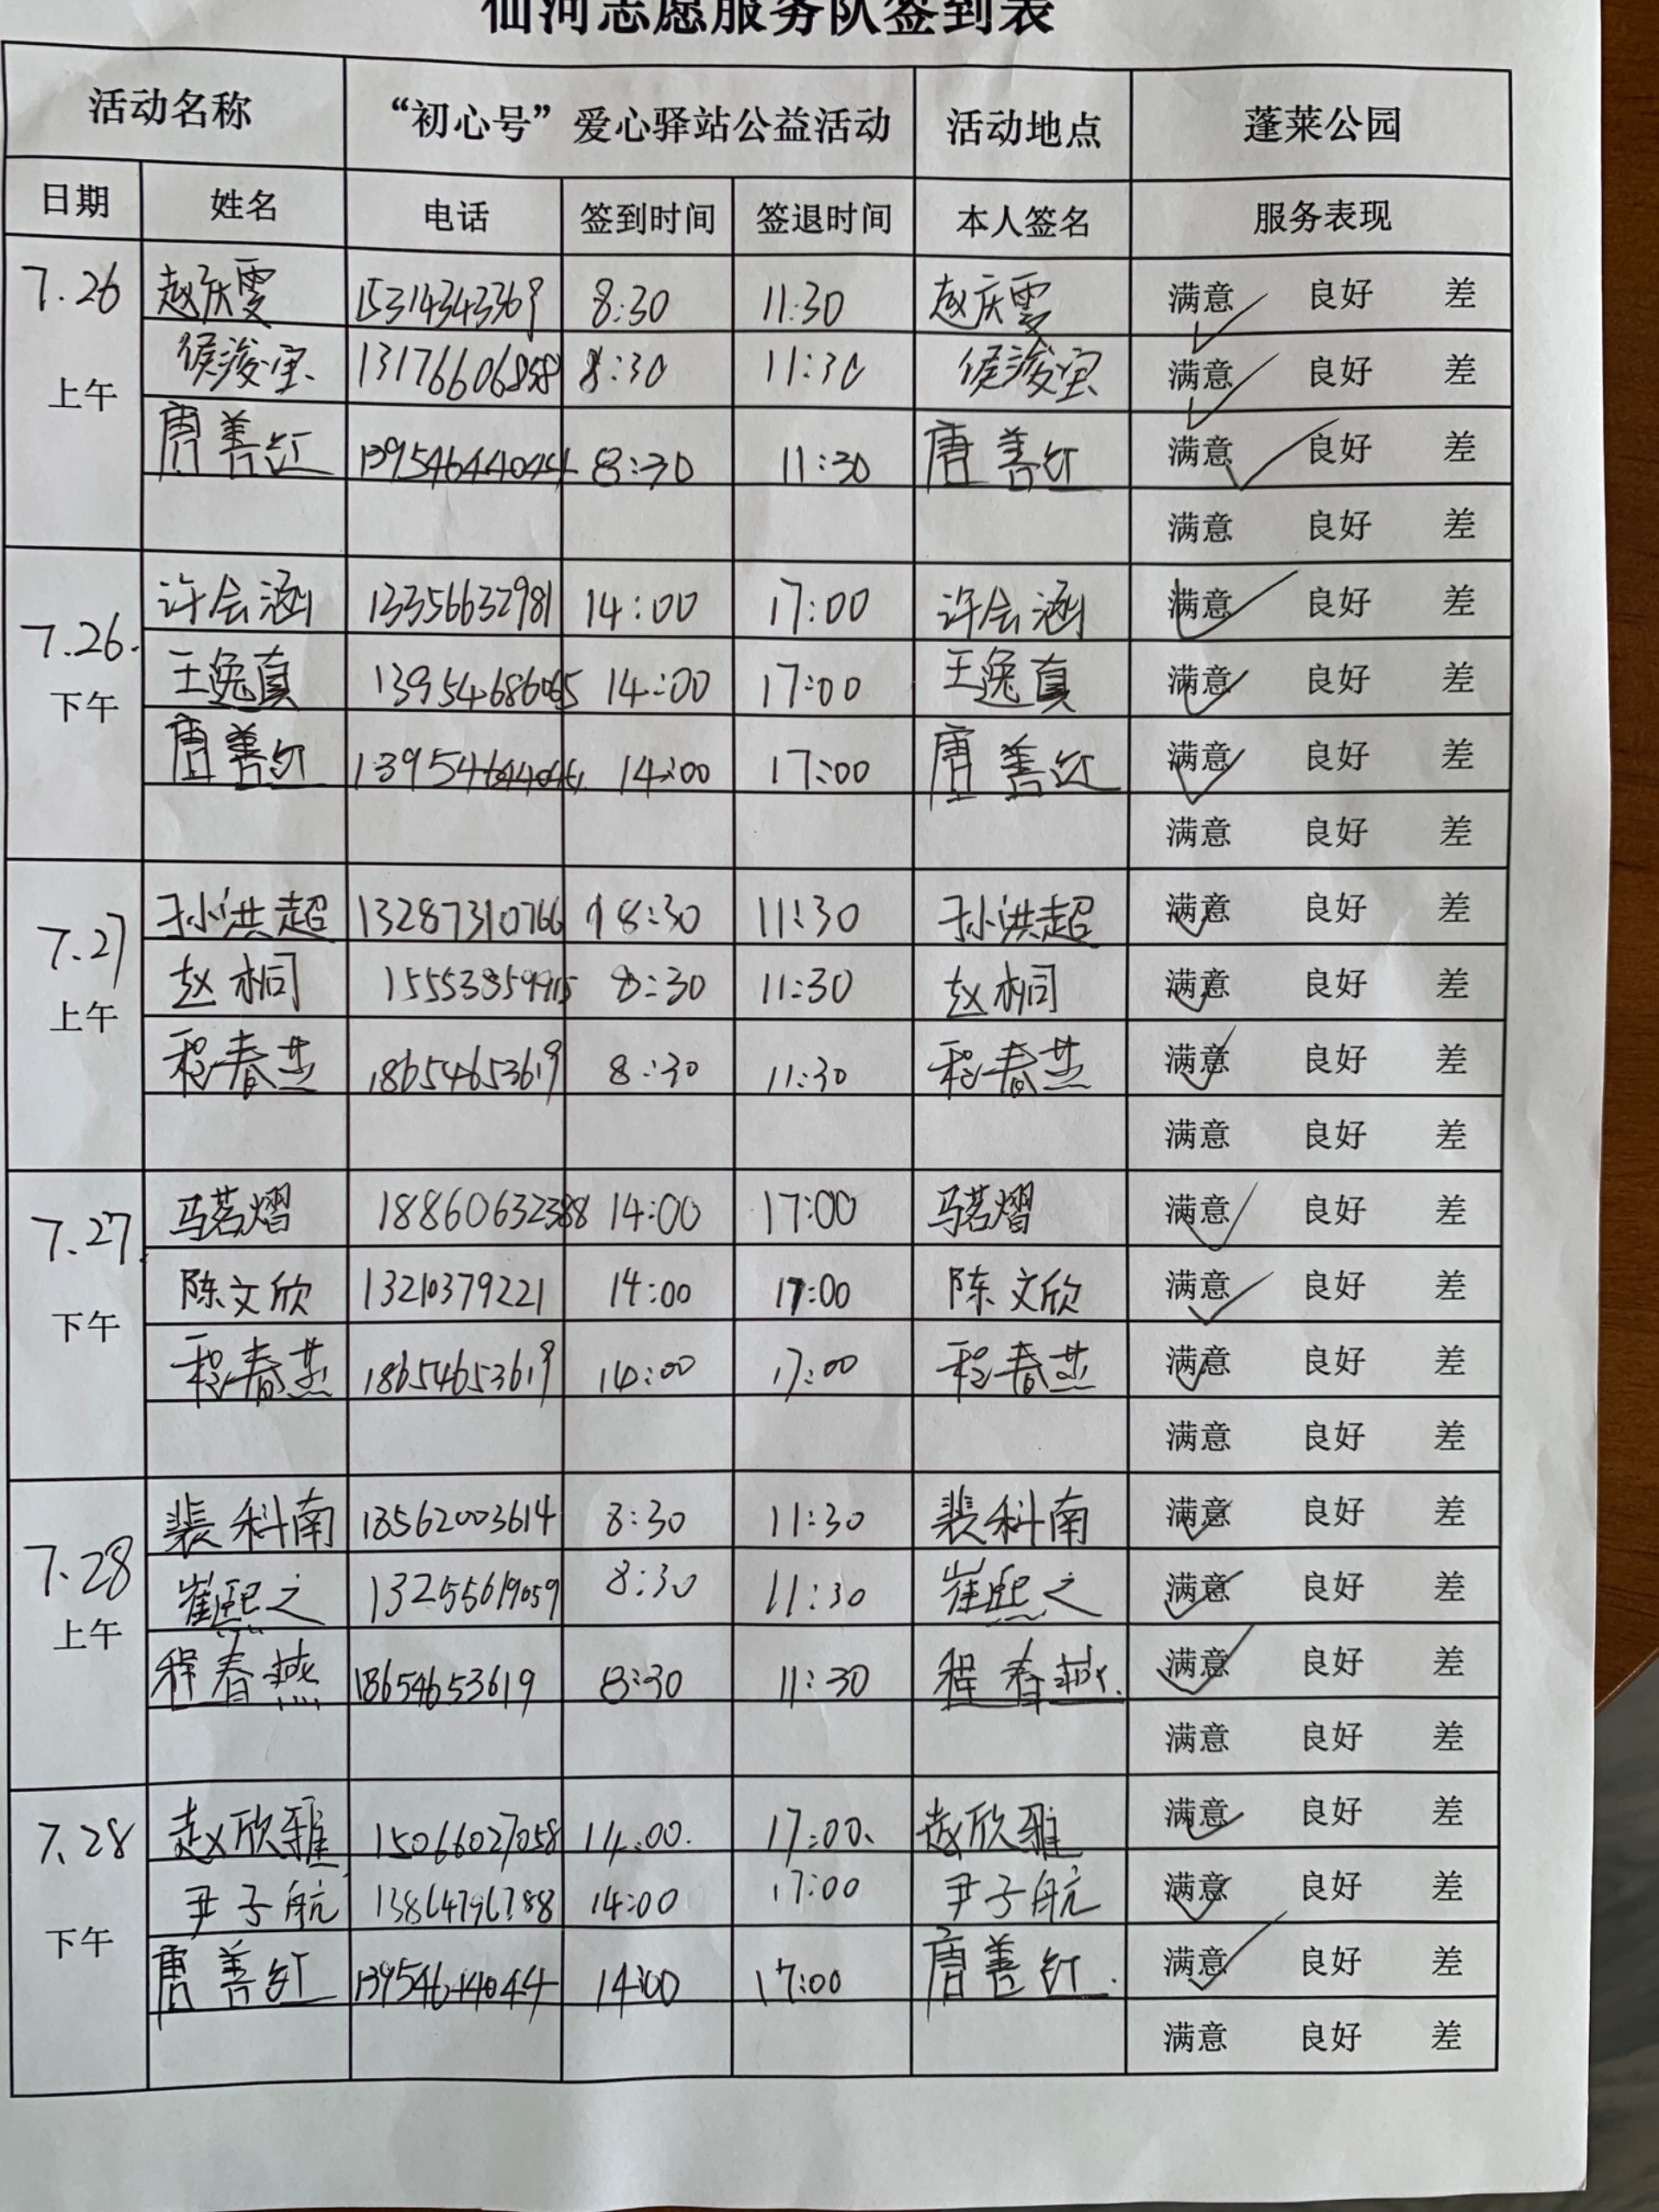 仙河志愿服务队签到表
活动名称 “初心号”爱心驿站公益活动 活动地点 蓬莱公园
日期 姓名 电话 签到时间 签退时间 本人签名 服务表现
7.26 上午 赵庆雯 15314343369 8:30 11:30 赵庆雯 满意 良好 差
侯浚宝 13176606858 8:30 11:30 侯浚宝 满意 良好 差
唐善红 13954644044 8:30 11:30 唐善红 满意 良好 差
满意 良好 差
7.26. 下午 许会涵 13356632981 14:00 17:00 许会涵 满意 良好 差
王逸真 13954686065 14:00 17:00 王逸真 满意 良好 差
唐善红 14:00 17:00 唐善红 满意 良好 差
满意 良好 差
7.27 上午 孙洪超 13287310766 8:30 11:30 孙洪超 满意 良好 差
赵桐 8:30 11:30 赵桐 满意 良好 差
程春燕 18654653619 8:30 11:30 程春燕 满意 良好 差
满意 良好 差
7.27 下午 马茗熠 18860632388 14:00 17:00 马茗熠 满意 良好 差
陈文欣 13210379221 14:00 17:00 陈文欣 满意 良好 差
程春燕 18654653619 14:00 17:00 程春燕 满意 良好 差
满意 良好 差
7.28 上午 裴科南 18562003614 8:30 11:30 裴科南 满意 良好 差
崔熙之 13255619059 8:30 11:30 崔熙之 满意 良好 差
程春燕 18654653619 8:30 11:30 程春燕. 满意 良好 差
满意 良好 差
7.28 下午 赵欣雅 15066027058 14:00. 17:00. 赵欣雅 满意 良好 差
尹子航 13864796788 14:00 17:00 尹子航 满意 良好 差
唐善红 13954644044 14:00 17:00 唐善红. 满意 良好 差
满意 良好 差